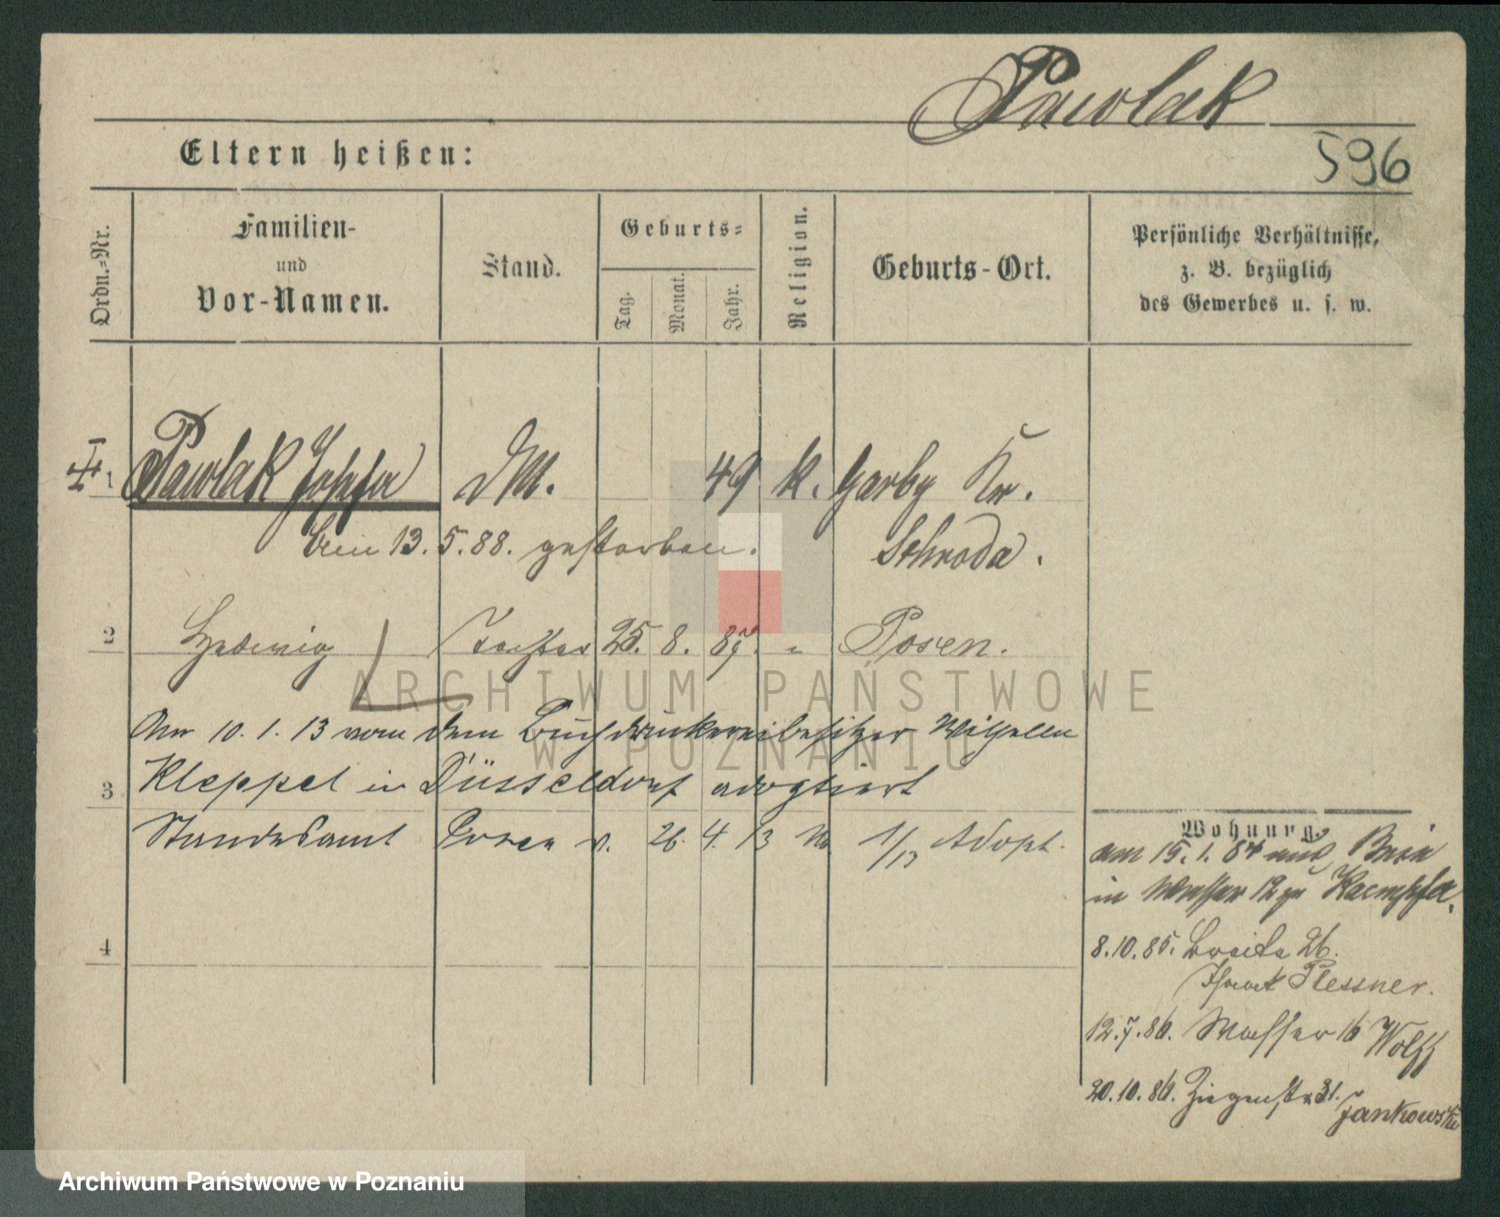 Pawlak
596
Eltern heißen:
Ordn.-Nr.
Familien-
und
Vor-Namen.
Stand.
Geburts-
Tag.
Monat.
Jahr.
Religion.
Geburts-Ort.
Persönliche Verhältnisse,
z. B. bezüglich
des Gewerbes u. s. w.
1 Pawlak Josefa DM. 49 k. Garby Kr.
Schroda.
Am 13.5.88. gestorben.
2 Hedwig Tochter 25. 8. 87. " Posen.
Am 10.1.13 von dem Buchdruckereibesitzer Wilhelm
3 Kleppel in Düsseldorf adoptiert
Standesamt Posen v. 26. 4. 13 No 1/13 Adopt.
4
Wohnung.
am 15.1.84 aus
in Wasser 12
8.10.85. Breite 26.
Plessner.
12.7.86. Wasser 16 Wolff
20.10.86. Ziegenstr. 31.
Jankowski
ARCHIWUM PAŃSTWOWE
W POZNANIU
Archiwum Państwowe w Poznaniu